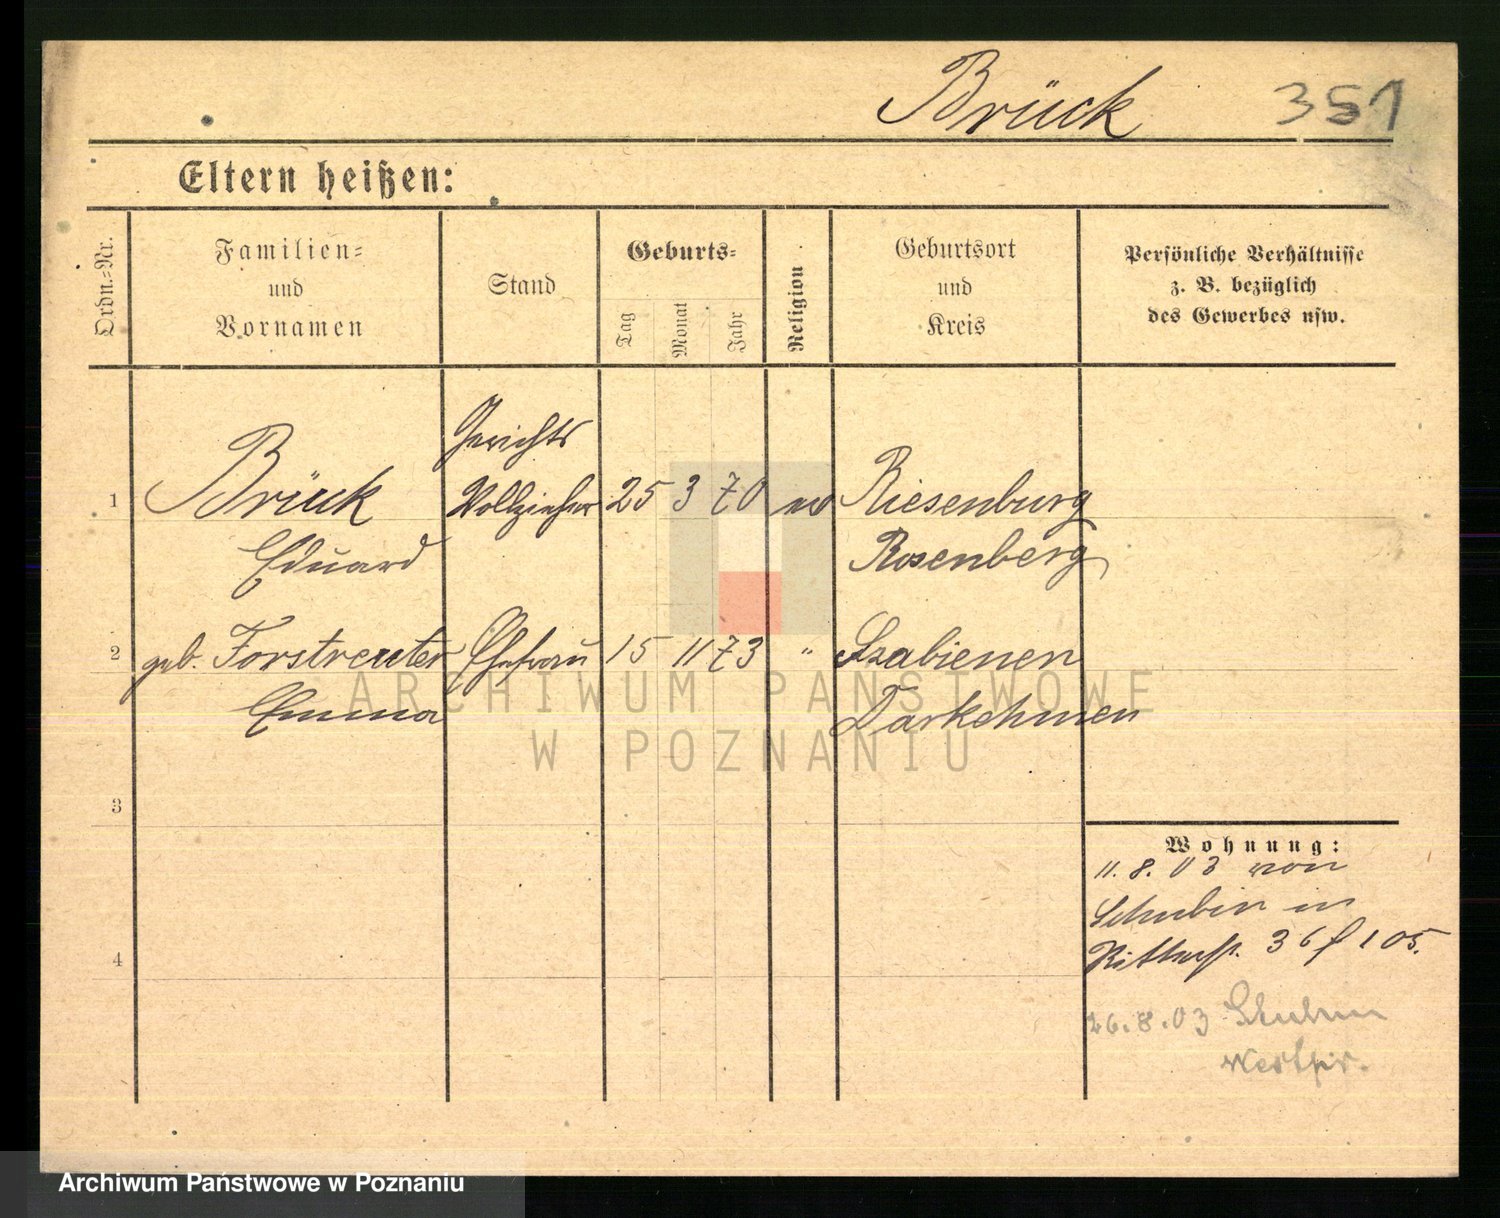 Brück 351
Eltern heißen:
Ordn.-Nr.
Familien-
und
Vornamen
Stand
Geburts-
Tag
Monat
Jahr
Religion
Geburtsort
und
Kreis
Persönliche Verhältnisse
z. B. bezüglich
des Gewerbes usw.
Gerichts
1 Brück Vollzieher 25 3 70 ev Riesenburg
Eduard Rosenberg
2 geb. Forstreuter Ehefrau 15 11 73 " Szabienen
Emma Darkehmen
3
Wohnung:
11.8.03 von
Schubin in
Ritterst. 36 f 105.
4
26.8.03
Westpr.
ARCHIWUM PAŃSTWOWE
W POZNANIU
Archiwum Państwowe w Poznaniu